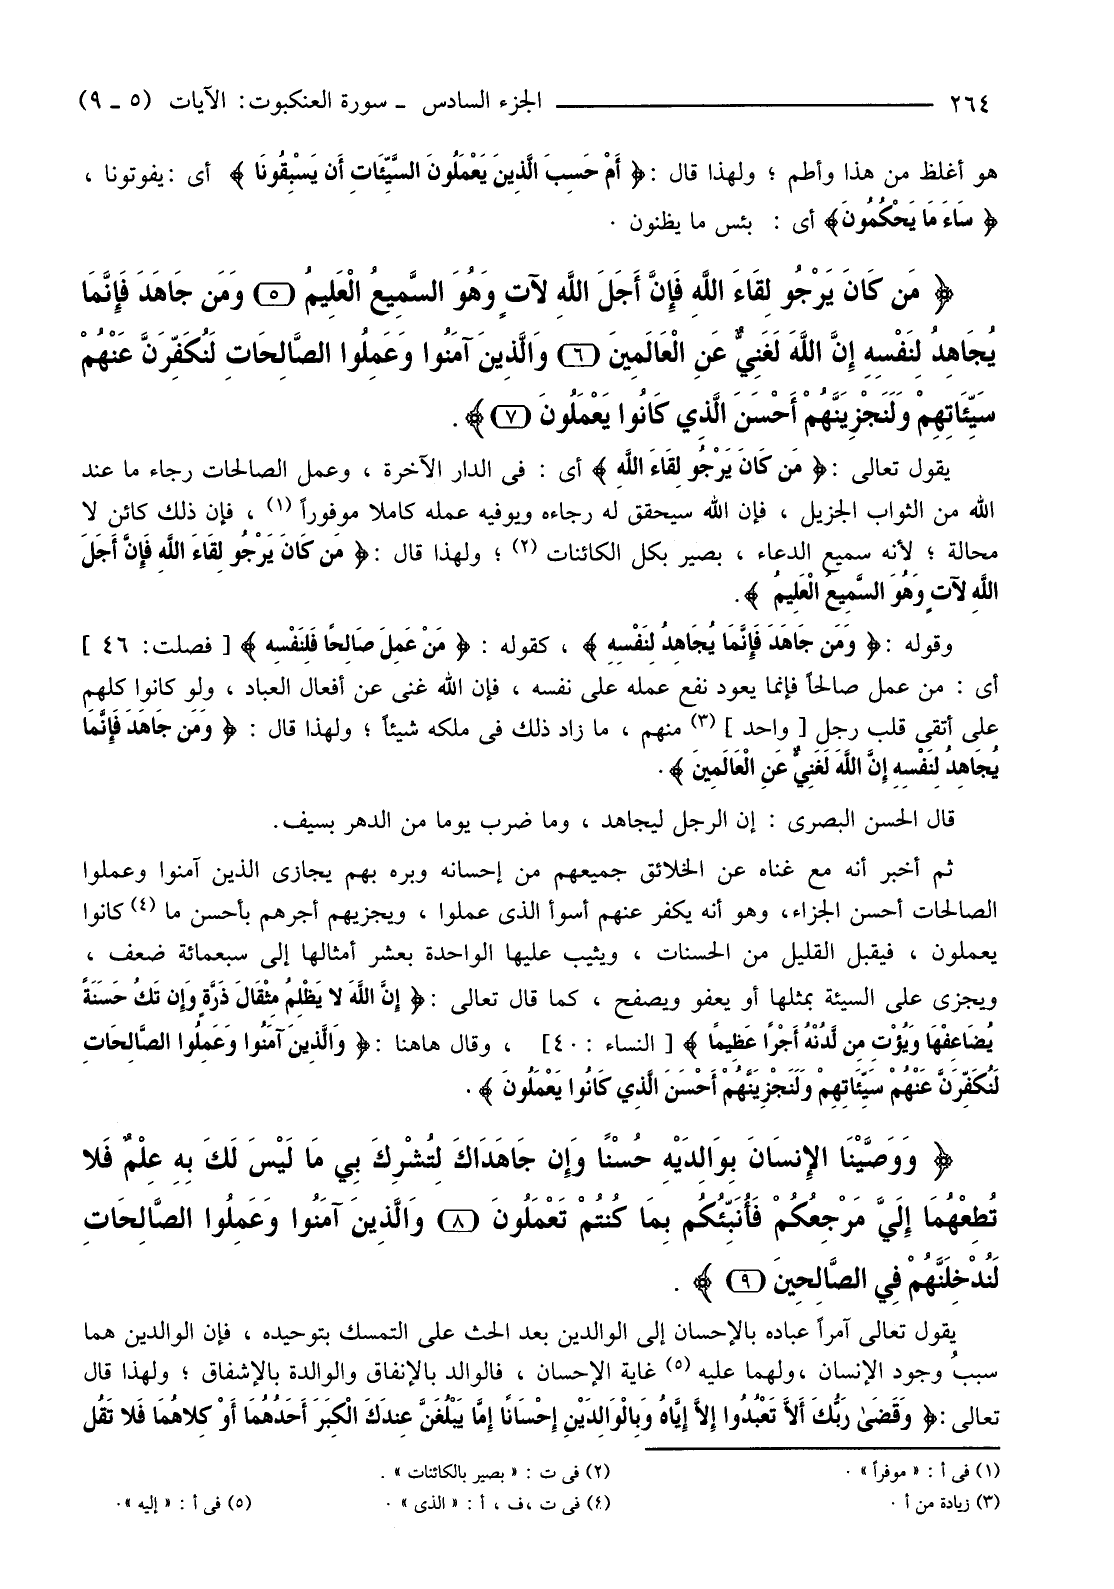 ٢٦٤ ــــــــــــــــ الجزء السادس ـ سورة العنكبوت: الآيات (٥ ـ ٩)
هو أغلظ من هذا وأطم ؛ ولهذا قال :﴿ أَمْ حَسِبَ الَّذِينَ يَعْمَلُونَ السَّيِّئَاتِ أَن يَسْبِقُونَا ﴾ أى :يفوتونا ،
﴿ سَاءَ مَا يَحْكُمُونَ﴾ أى : بئس ما يظنون .
﴿ مَن كَانَ يَرْجُو لِقَاءَ اللَّهِ فَإِنَّ أَجَلَ اللَّهِ لآتٍ وَهُوَ السَّمِيعُ الْعَلِيمُ (٥) وَمَن جَاهَدَ فَإِنَّمَا
يُجَاهِدُ لِنَفْسِهِ إِنَّ اللَّهَ لَغَنِيٌّ عَنِ الْعَالَمِينَ (٦) وَالَّذِينَ آمَنُوا وَعَمِلُوا الصَّالِحَاتِ لَنُكَفِّرَنَّ عَنْهُمْ
سَيِّئَاتِهِمْ وَلَنَجْزِيَنَّهُمْ أَحْسَنَ الَّذِي كَانُوا يَعْمَلُونَ (٧)﴾ .
يقول تعالى :﴿ مَن كَانَ يَرْجُو لِقَاءَ اللَّهِ ﴾ أى : فى الدار الآخرة ، وعمل الصالحات رجاء ما عند
الله من الثواب الجزيل ، فإن الله سيحقق له رجاءه ويوفيه عمله كاملا موفوراً (١) ، فإن ذلك كائن لا
محالة ؛ لأنه سميع الدعاء ، بصير بكل الكائنات (٢) ؛ ولهذا قال :﴿ مَن كَانَ يَرْجُو لِقَاءَ اللَّهِ فَإِنَّ أَجَلَ
اللَّهِ لآتٍ وَهُوَ السَّمِيعُ الْعَلِيمُ ﴾ .
وقوله :﴿ وَمَن جَاهَدَ فَإِنَّمَا يُجَاهِدُ لِنَفْسِهِ ﴾ ، كقوله : ﴿ مَنْ عَمِلَ صَالِحًا فَلِنَفْسِهِ ﴾ [ فصلت: ٤٦ ]
أى : من عمل صالحاً فإنما يعود نفع عمله على نفسه ، فإن الله غنى عن أفعال العباد ، ولو كانوا كلهم
على أتقى قلب رجل [ واحد ] (٣) منهم ، ما زاد ذلك فى ملكه شيئاً ؛ ولهذا قال : ﴿ وَمَن جَاهَدَ فَإِنَّمَا
يُجَاهِدُ لِنَفْسِهِ إِنَّ اللَّهَ لَغَنِيٌّ عَنِ الْعَالَمِينَ ﴾ .
قال الحسن البصرى : إن الرجل ليجاهد ، وما ضرب يوما من الدهر بسيف.
ثم أخبر أنه مع غناه عن الخلائق جميعهم من إحسانه وبره بهم يجازى الذين آمنوا وعملوا
الصالحات أحسن الجزاء، وهو أنه يكفر عنهم أسوأ الذى عملوا ، ويجزيهم أجرهم بأحسن ما (٤) كانوا
يعملون ، فيقبل القليل من الحسنات ، ويثيب عليها الواحدة بعشر أمثالها إلى سبعمائة ضعف ،
ويجزى على السيئة بمثلها أو يعفو ويصفح ، كما قال تعالى :﴿ إِنَّ اللَّهَ لا يَظْلِمُ مِثْقَالَ ذَرَّةٍ وَإِن تَكُ حَسَنَةً
يُضَاعِفْهَا وَيُؤْتِ مِن لَّدُنْهُ أَجْرًا عَظِيمًا ﴾ [ النساء :٤٠] ، وقال هاهنا :﴿ وَالَّذِينَ آمَنُوا وَعَمِلُوا الصَّالِحَاتِ
لَنُكَفِّرَنَّ عَنْهُمْ سَيِّئَاتِهِمْ وَلَنَجْزِيَنَّهُمْ أَحْسَنَ الَّذِي كَانُوا يَعْمَلُونَ ﴾ .
﴿ وَوَصَّيْنَا الإِنسَانَ بِوَالِدَيْهِ حُسْنًا وَإِن جَاهَدَاكَ لِتُشْرِكَ بِي مَا لَيْسَ لَكَ بِهِ عِلْمٌ فَلا
تُطِعْهُمَا إِلَيَّ مَرْجِعُكُمْ فَأُنَبِّئُكُم بِمَا كُنتُمْ تَعْمَلُونَ (٨) وَالَّذِينَ آمَنُوا وَعَمِلُوا الصَّالِحَاتِ
لَنُدْخِلَنَّهُمْ فِي الصَّالِحِينَ (٩) ﴾ .
يقول تعالى آمراً عباده بالإحسان إلى الوالدين بعد الحث على التمسك بتوحيده ، فإن الوالدين هما
سببُ وجود الإنسان ،ولهما عليه (٥) غاية الإحسان ، فالوالد بالإنفاق والوالدة بالإشفاق ؛ ولهذا قال
تعالى :﴿ وَقَضَىٰ رَبُّكَ أَلاَّ تَعْبُدُوا إِلاَّ إِيَّاهُ وَبِالْوَالِدَيْنِ إِحْسَانًا إِمَّا يَبْلُغَنَّ عِندَكَ الْكِبَرَ أَحَدُهُمَا أَوْ كِلاهُمَا فَلا تَقُل
(١) فى أ : « موفراً » . (٢) فى ت : « بصير بالكائنات » .
(٣) زيادة من أ . (٤) فى ت ،ف ، أ : « الذى » . (٥) فى أ : « إليه ».